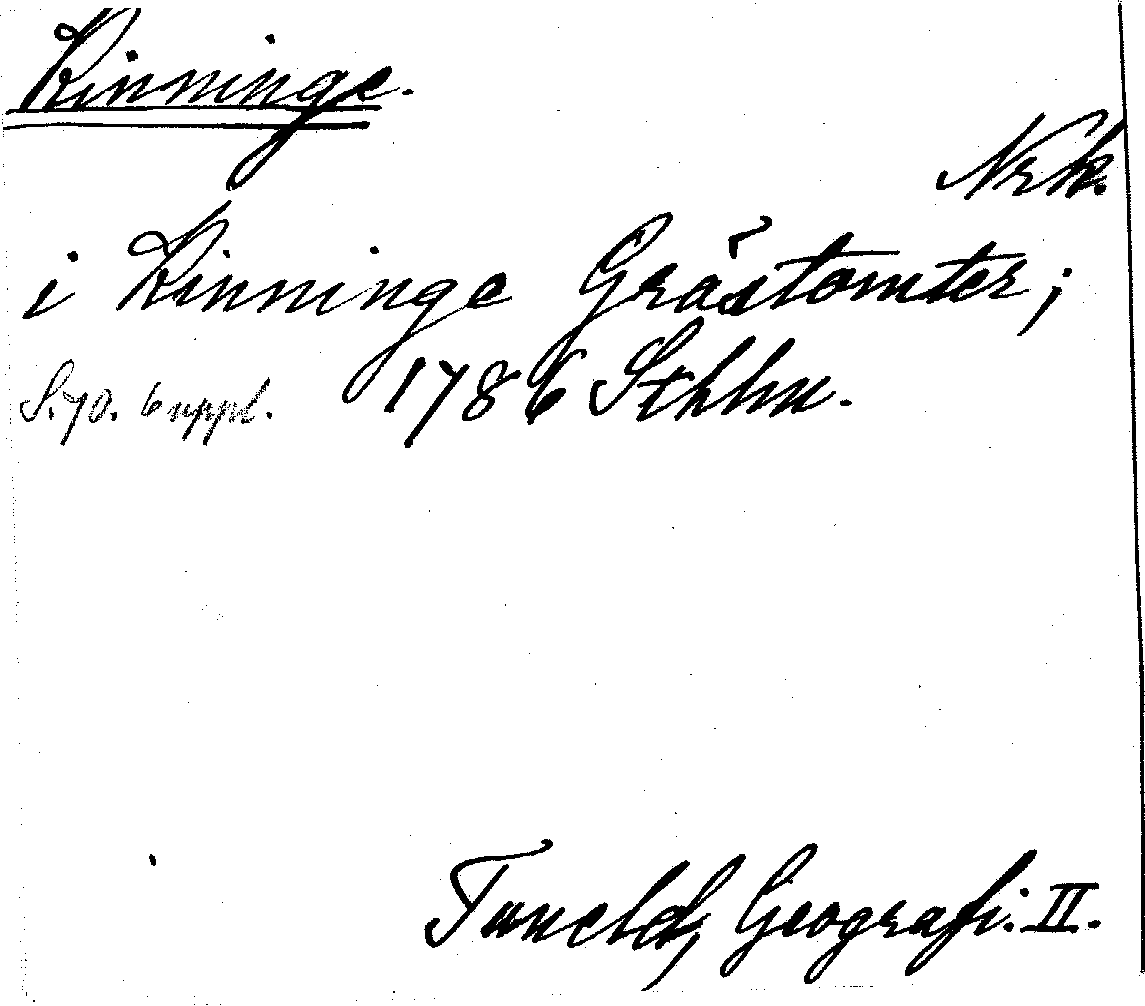 Kinninge.
Nrk.
i Kinninge Grästomter;
S. 70. 6 uppl. 1786 Sthlm.
Tuneld, Geografi. II.